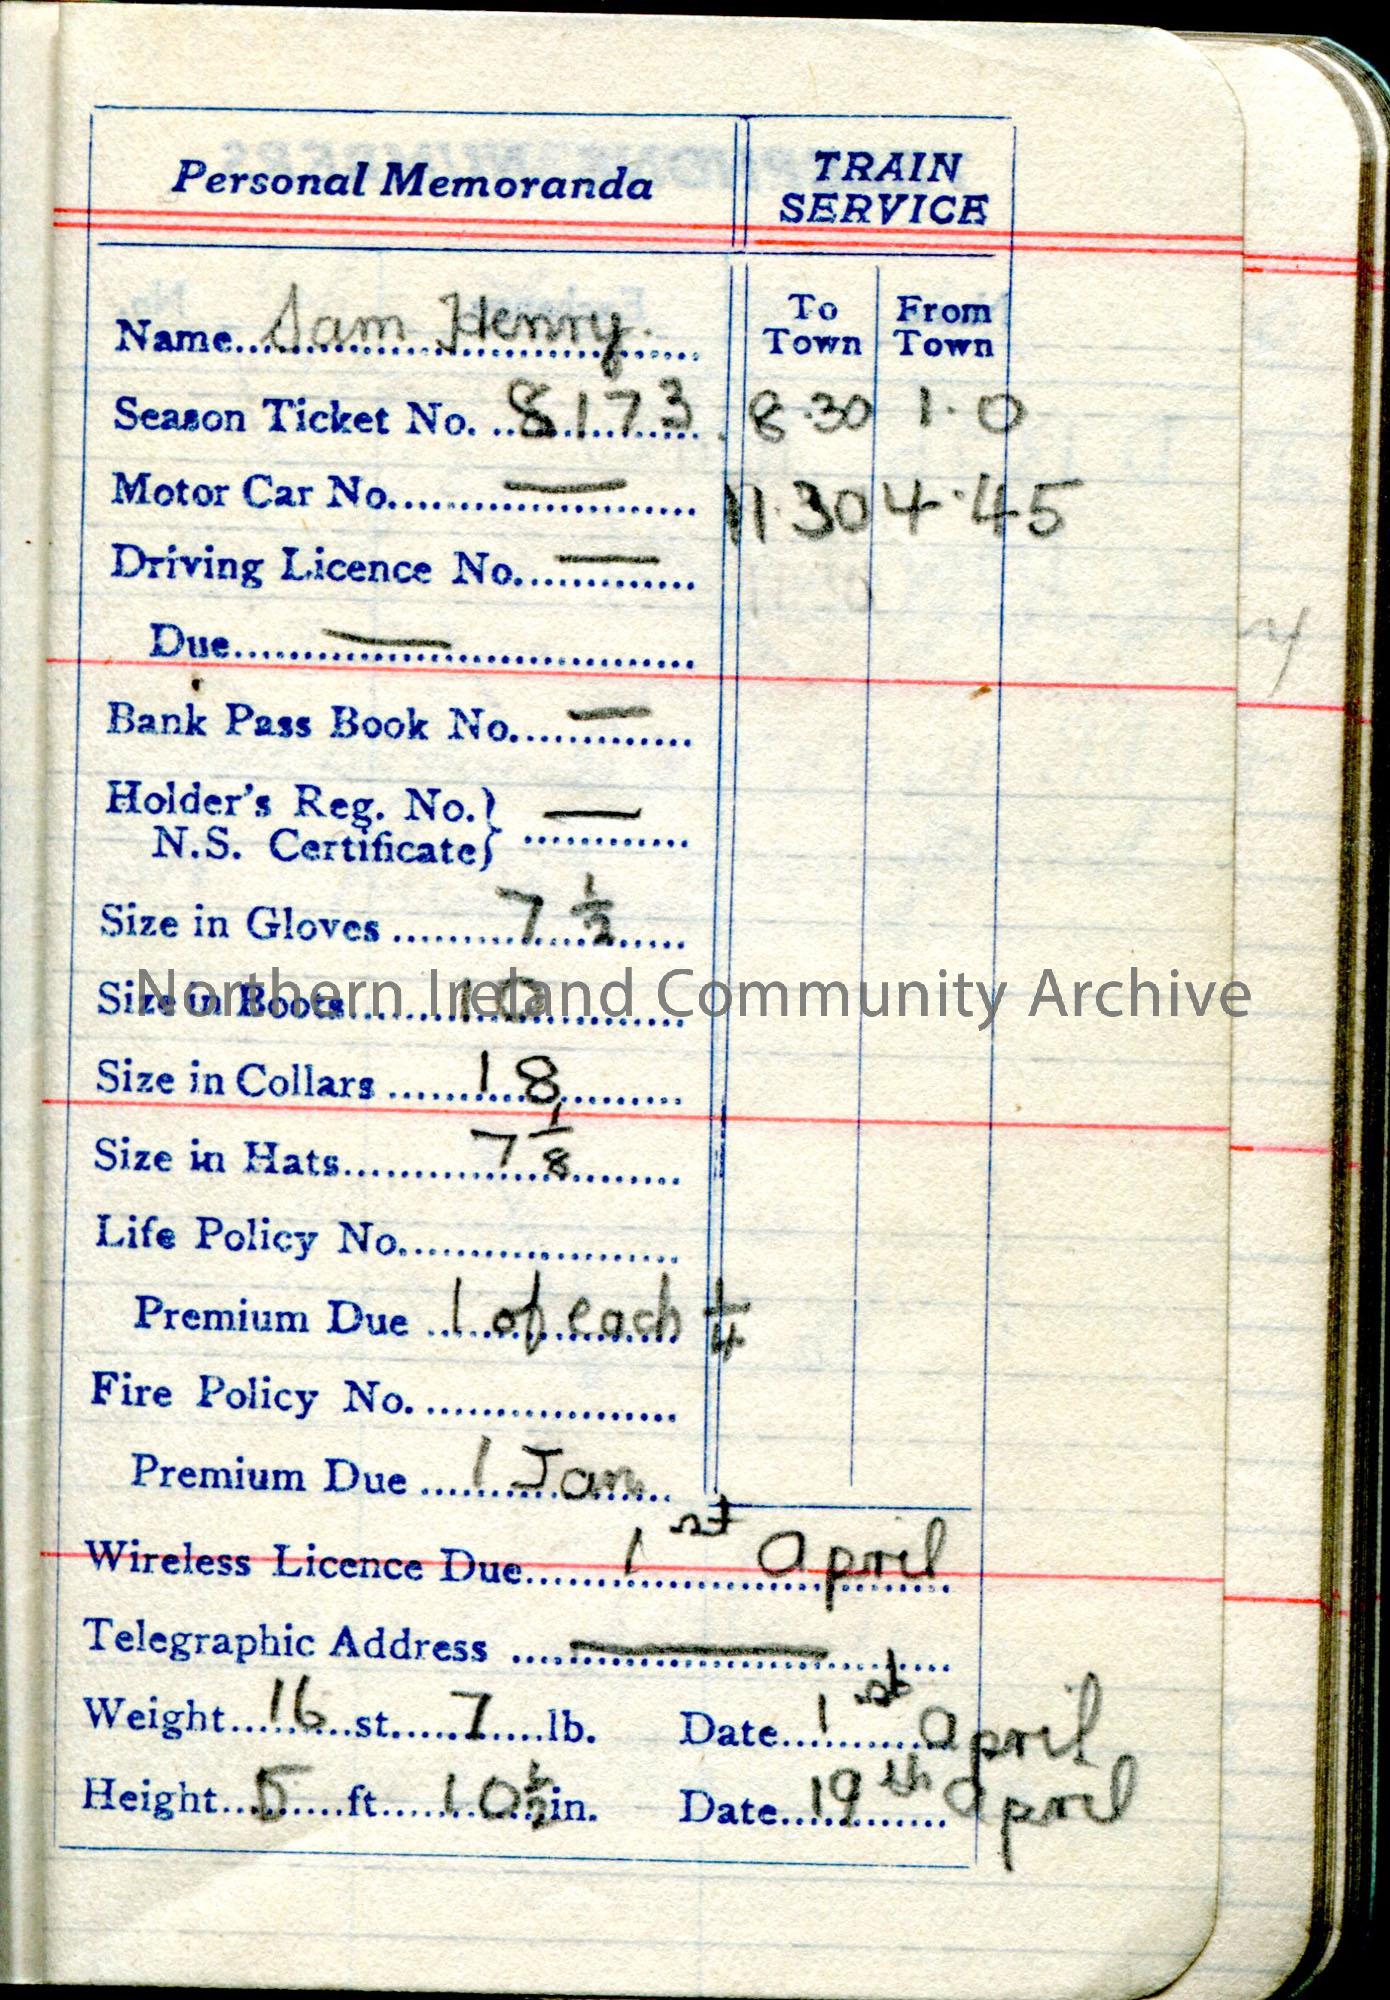 Personal Memoranda
TRAIN
SERVICE
To
Town
From
Town
Name Sam Henry.
Season Ticket No. 8173
8.30 1.0
Motor Car No. —
11.30 4.45
Driving Licence No. —
Due —
Bank Pass Book No. —
Holder's Reg. No.}
N.S. Certificate} —
Size in Gloves 7 1/2
Size in Boots 10
Northern Ireland Community Archive
Size in Collars 18
Size in Hats 7 1/8
Life Policy No.
Premium Due 1 of each 1/4
Fire Policy No.
Premium Due 1 Jan
Wireless Licence Due 1st April
Telegraphic Address —
Weight 16 st. 7 lb. Date 1st April
Height 5 ft 10 1/2 in. Date 19th April